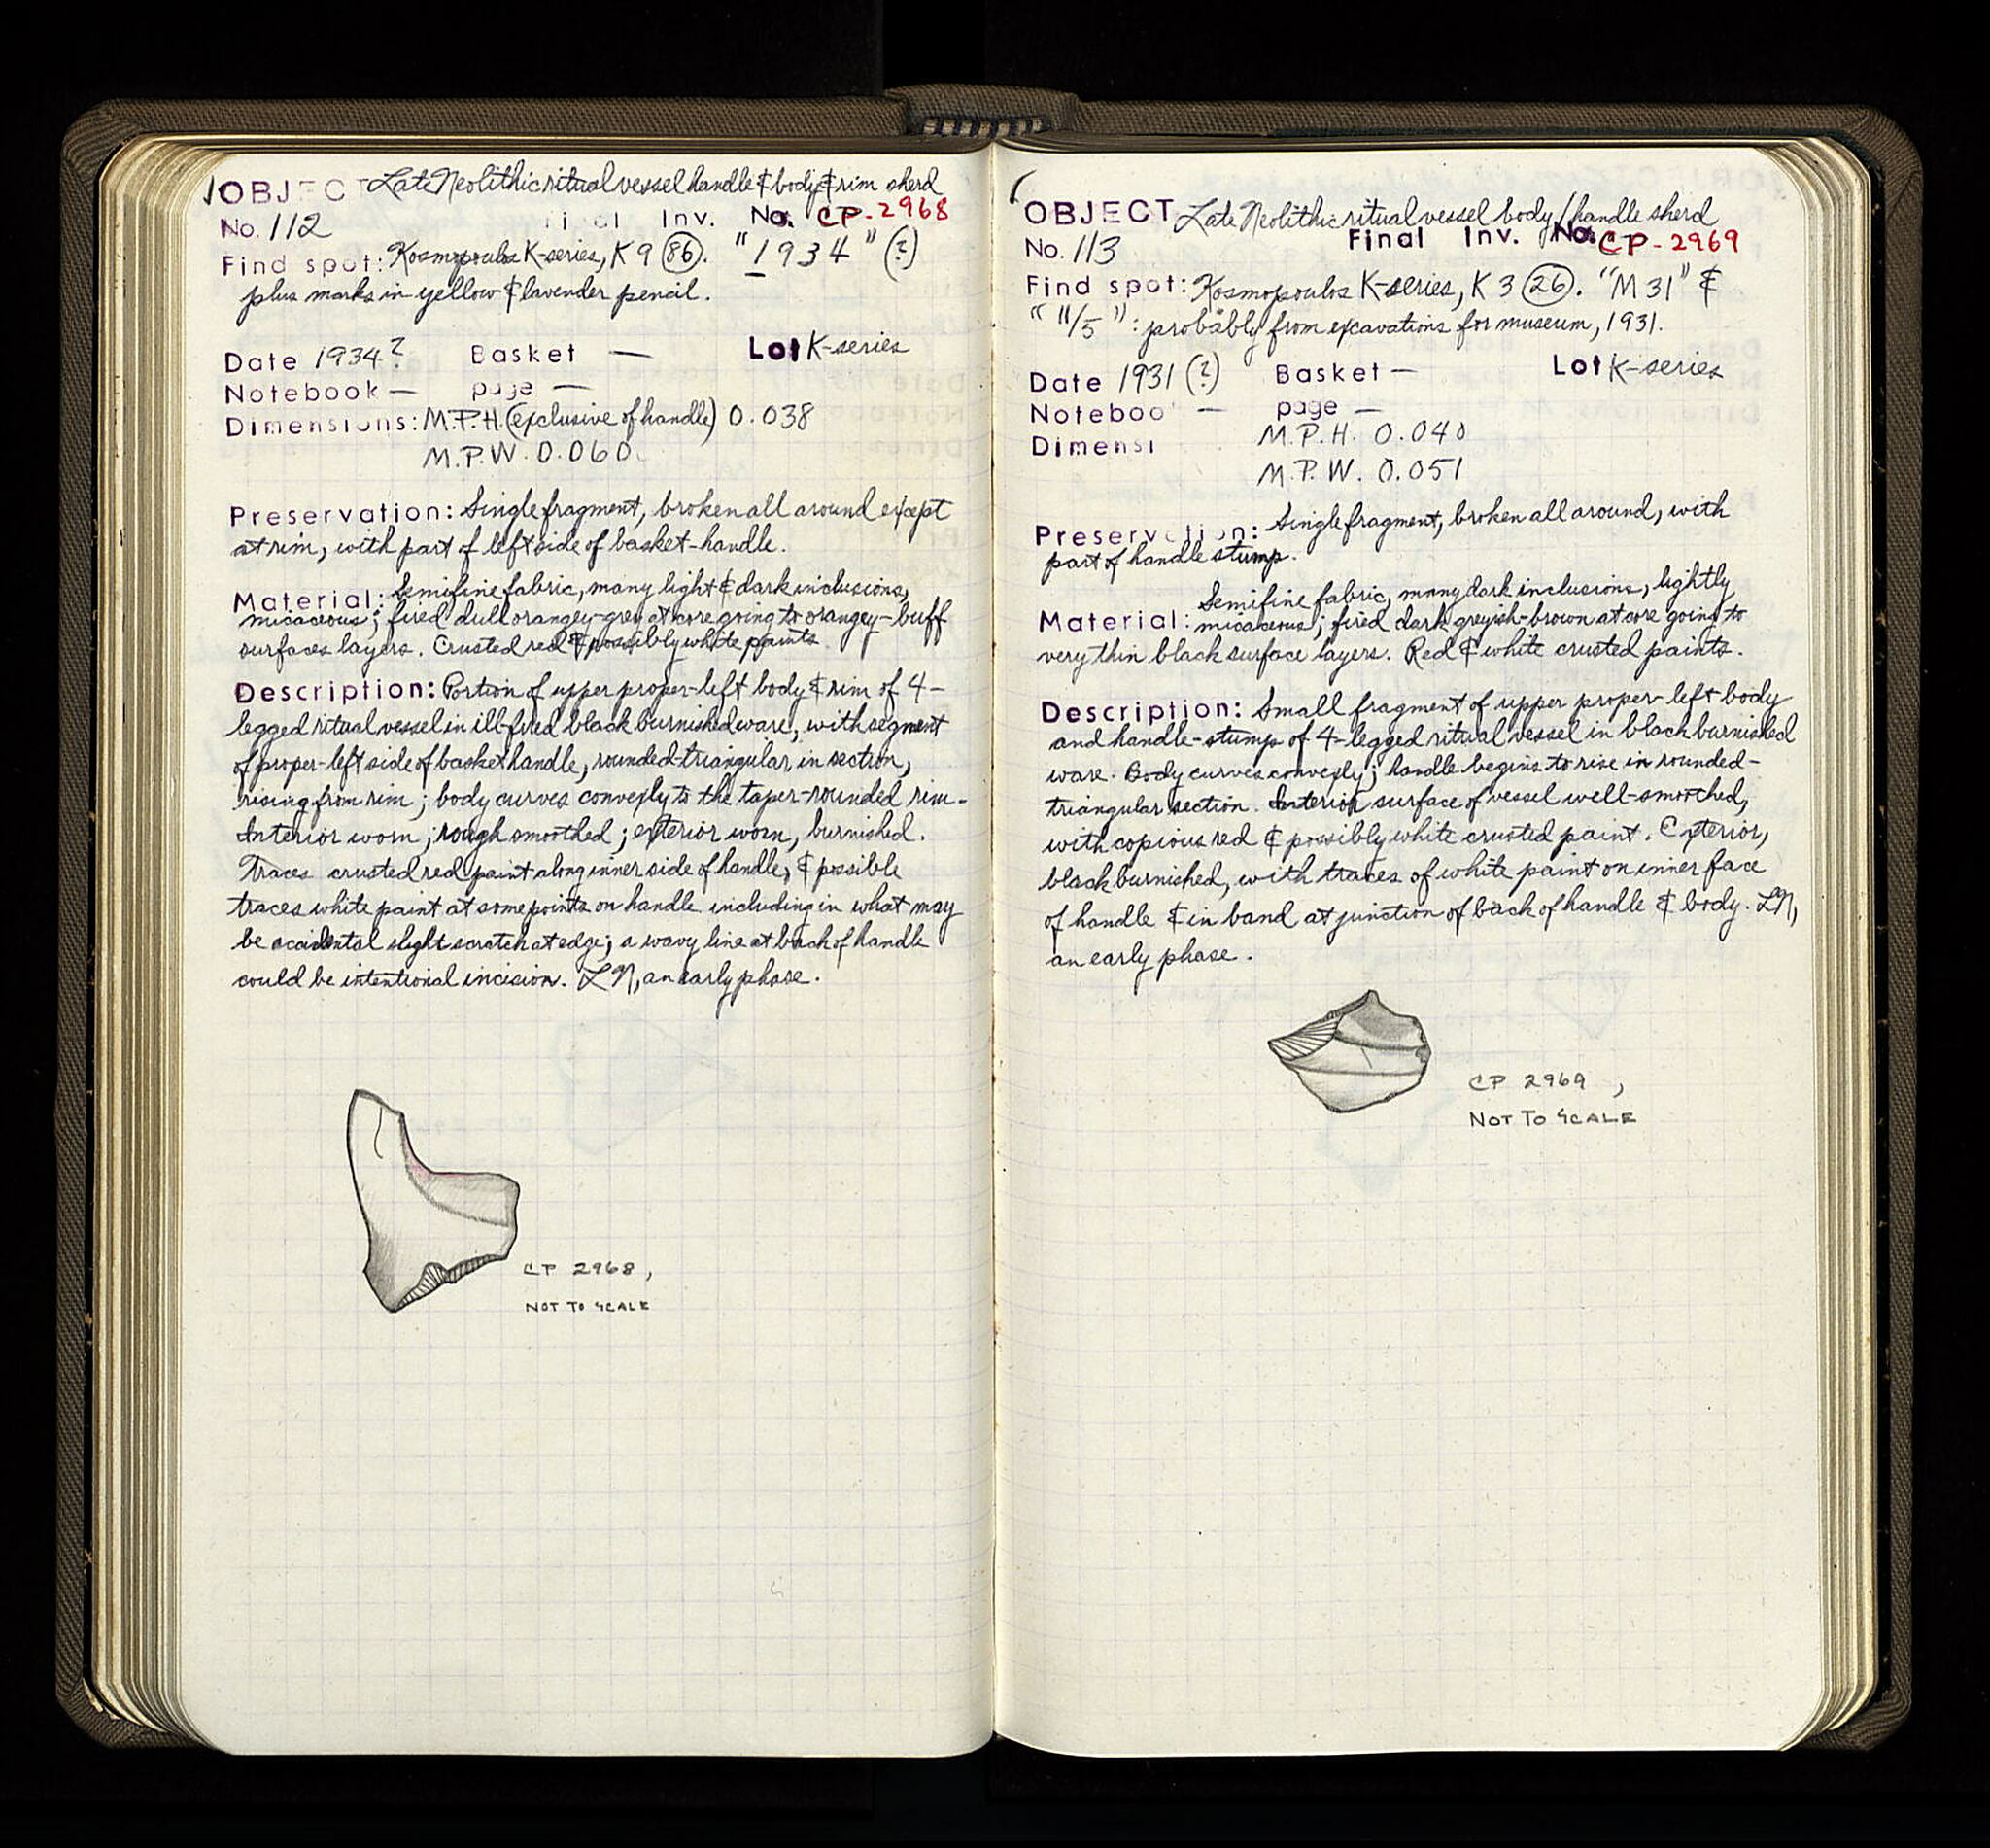 OBJECT Late Neolithic ritual vessel handle & body & rim sherd
No. 112 Final Inv. No. CP-2968
Find spot: Kosmopoulos K-series, K 9 (86). "1934" (?)
plus marks in yellow & lavender pencil.
Date 1934? Basket — Lot K-series
Notebook — page —
Dimensions: M.P.H. (exclusive of handle) 0.038
M.P.W. 0.060
Preservation: Single fragment, broken all around except
at rim, with part of left side of basket-handle.
Material: Semifine fabric, many light & dark inclusions,
micaceous; fired dull orangey-grey at core going to orangey-buff
surfaces layers. Crusted red & possibly white paints
Description: Portion of upper proper-left body & rim of 4-
legged ritual vessel in ill-fired black burnished ware, with segment
of proper-left side of basket handle, rounded-triangular in section,
rising from rim; body curves convexly to the taper-rounded rim.
Interior worn, rough smoothed; exterior worn, burnished.
Traces crusted red paint along inner side of handle, & possible
traces white paint at some points on handle including in what may
be accidental slight scratch at edge; a wavy line at back of handle
could be intentional incision. LN, an early phase.
CP 2968,
NOT TO SCALE
OBJECT Late Neolithic ritual vessel body/handle sherd
No. 113 Final Inv. No. CP-2969
Find spot: Kosmopoulos K-series, K 3 (26). "M 31" &
" 11/5 ": probably from excavations for museum, 1931.
Date 1931 (?) Basket — Lot K-series
Noteboo — page —
Dimensi M.P.H. 0.040
M.P.W. 0.051
Preservation: Single fragment, broken all around, with
part of handle stump.
Material: Semifine fabric, many dark inclusions, lightly
micaceous; fired dark greyish-brown at core going to
very thin black surface layers. Red & white crusted paints.
Description: Small fragment of upper proper-left body
and handle-stump of 4-legged ritual vessel in black burnished
ware. Body curves convexly; handle begins to rise in rounded-
triangular section. Interior surface of vessel well-smoothed,
with copious red & possibly white crusted paint. Exterior,
black burnished, with traces of white paint on inner face
of handle & in band at junction of back of handle & body. LN,
an early phase.
CP 2969,
NOT TO SCALE